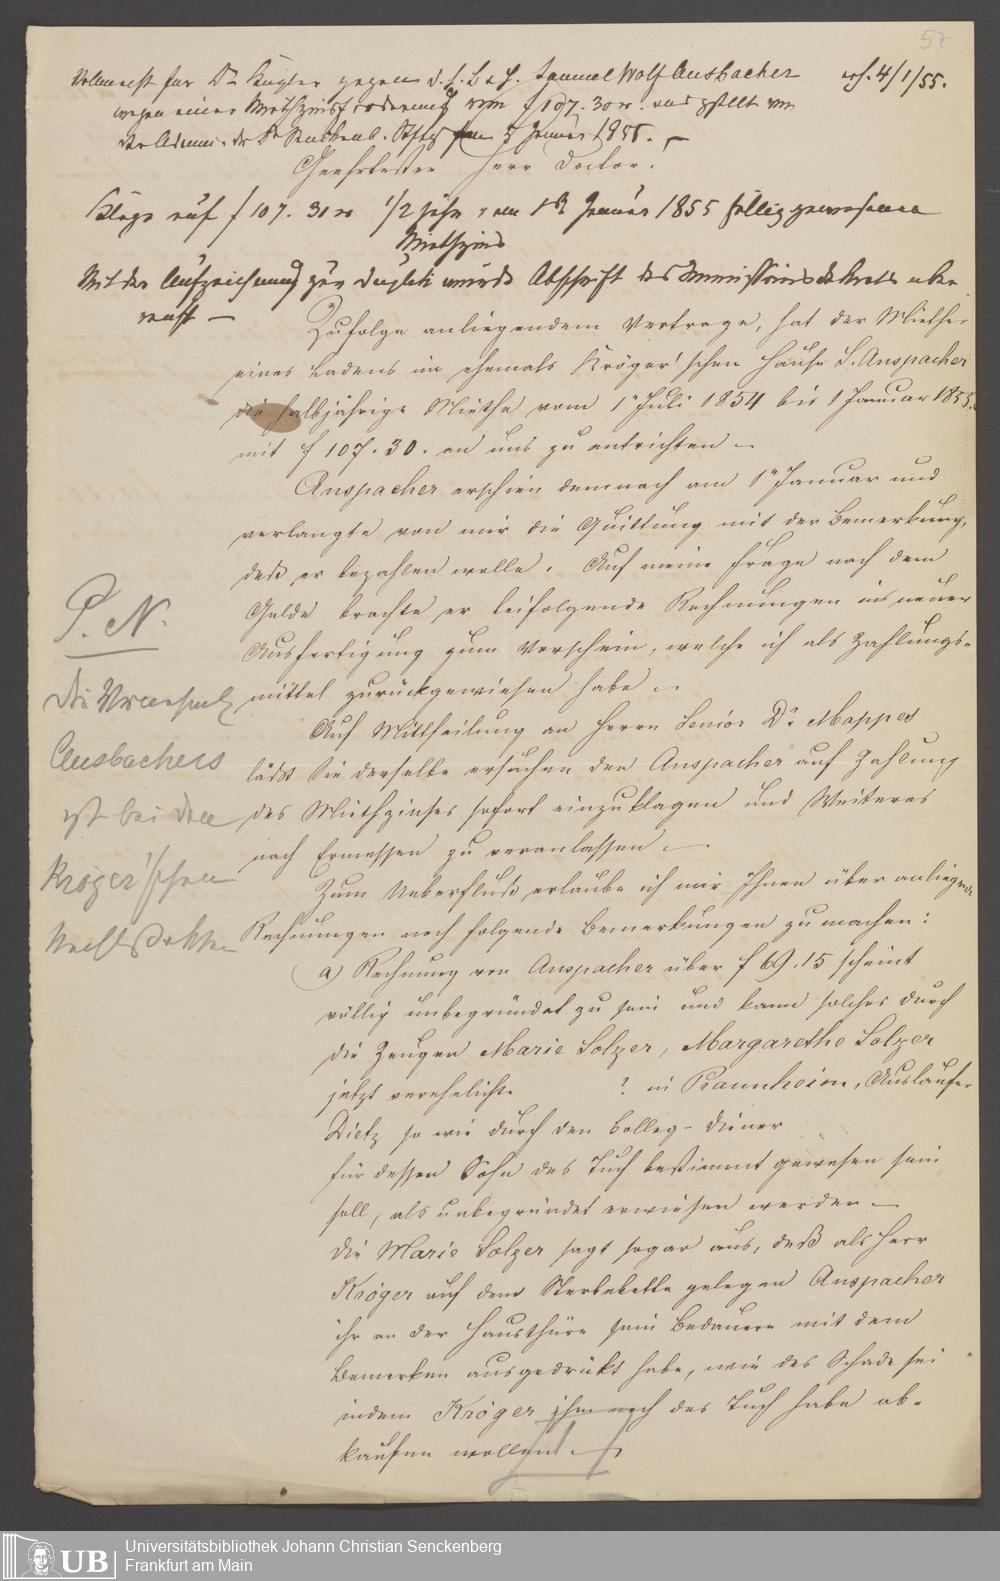 57
Vollmacht für Dr Kugler gegen d. h. B. & H. Samuel Wolf Ansbacher erh. 4/1/55.
wegen einer Miethzinsforderung von f 107. 30 xr. ausgestellt von
der Admin. der Dr Senckenb. Stiftg am 3 Januar 1855. —
Geehrtester Herr Doctor!
Klage auf f 107. 30 xr 1/2 jähr. am 1t Januar 1855 fällig gewesenen
Miethzins
Mit der Aufzeichnung zur Duplik wurde Abschrift des Immissionsdekrets über-
reicht —
Zufolge anliegendem Vertrage, hat der Miether
eines Ladens im ehemals Kröger'schen Hause S. Anspacher
die halbjährige Miethe vom 1n Juli 1854 bis 1 Januar 1855.
mit f 107. 30. an uns zu entrichten —
Anspacher erschien demnach am 1n Januar und
verlangte von mir die Quittung mit der Bemerkung,
daß er bezahlen wolle. Auf meine Frage nach dem
Gelde brachte er beifolgende Rechnungen in neuer
Ausfertigung zum Vorschein, welche ich als Zahlungs-
mittel zurückgewiesen habe —
Auf Mittheilung an Herrn Senior Dr Mappes
läßt Sie derselbe ersuchen den Anspacher auf Zahlung
des Miethzinses sofort einzuklagen und Weiteres
nach Ermessen zu veranlassen —
Zum Ueberfluß erlaube ich mir Ihnen über anliegende
Rechnungen noch folgende Bemerkungen zu machen:
a) Rechnung von Anspacher über f 69. 15 scheint
völlig unbegründet zu sein und kann solches durch
die Zeugen Marie Solzer, Margarethe Solzer
jetzt verehelichte ? in Raunheim, Auslaufer
Dietz so wie durch den Colleg-Diener
für dessen Sohn das Tuch bestimmt gewesen sein
soll, als unbegründet erwiesen werden —
Die Marie Solzer sagt sogar aus, daß als Herr
Kröger auf dem Sterbebette gelegen Anspacher
ihr an der Hausthüre sein Bedauern mit dem
Bemerken ausgedrückt habe, wie das Schade sei
indem Kröger ihm noch das Tuch habe ab-
kaufen wollen —
P. N.
Ansbachers
ist bei den
Kröger'schen
Nachlaßakten
UB
Universitätsbibliothek Johann Christian Senckenberg
Frankfurt am Main